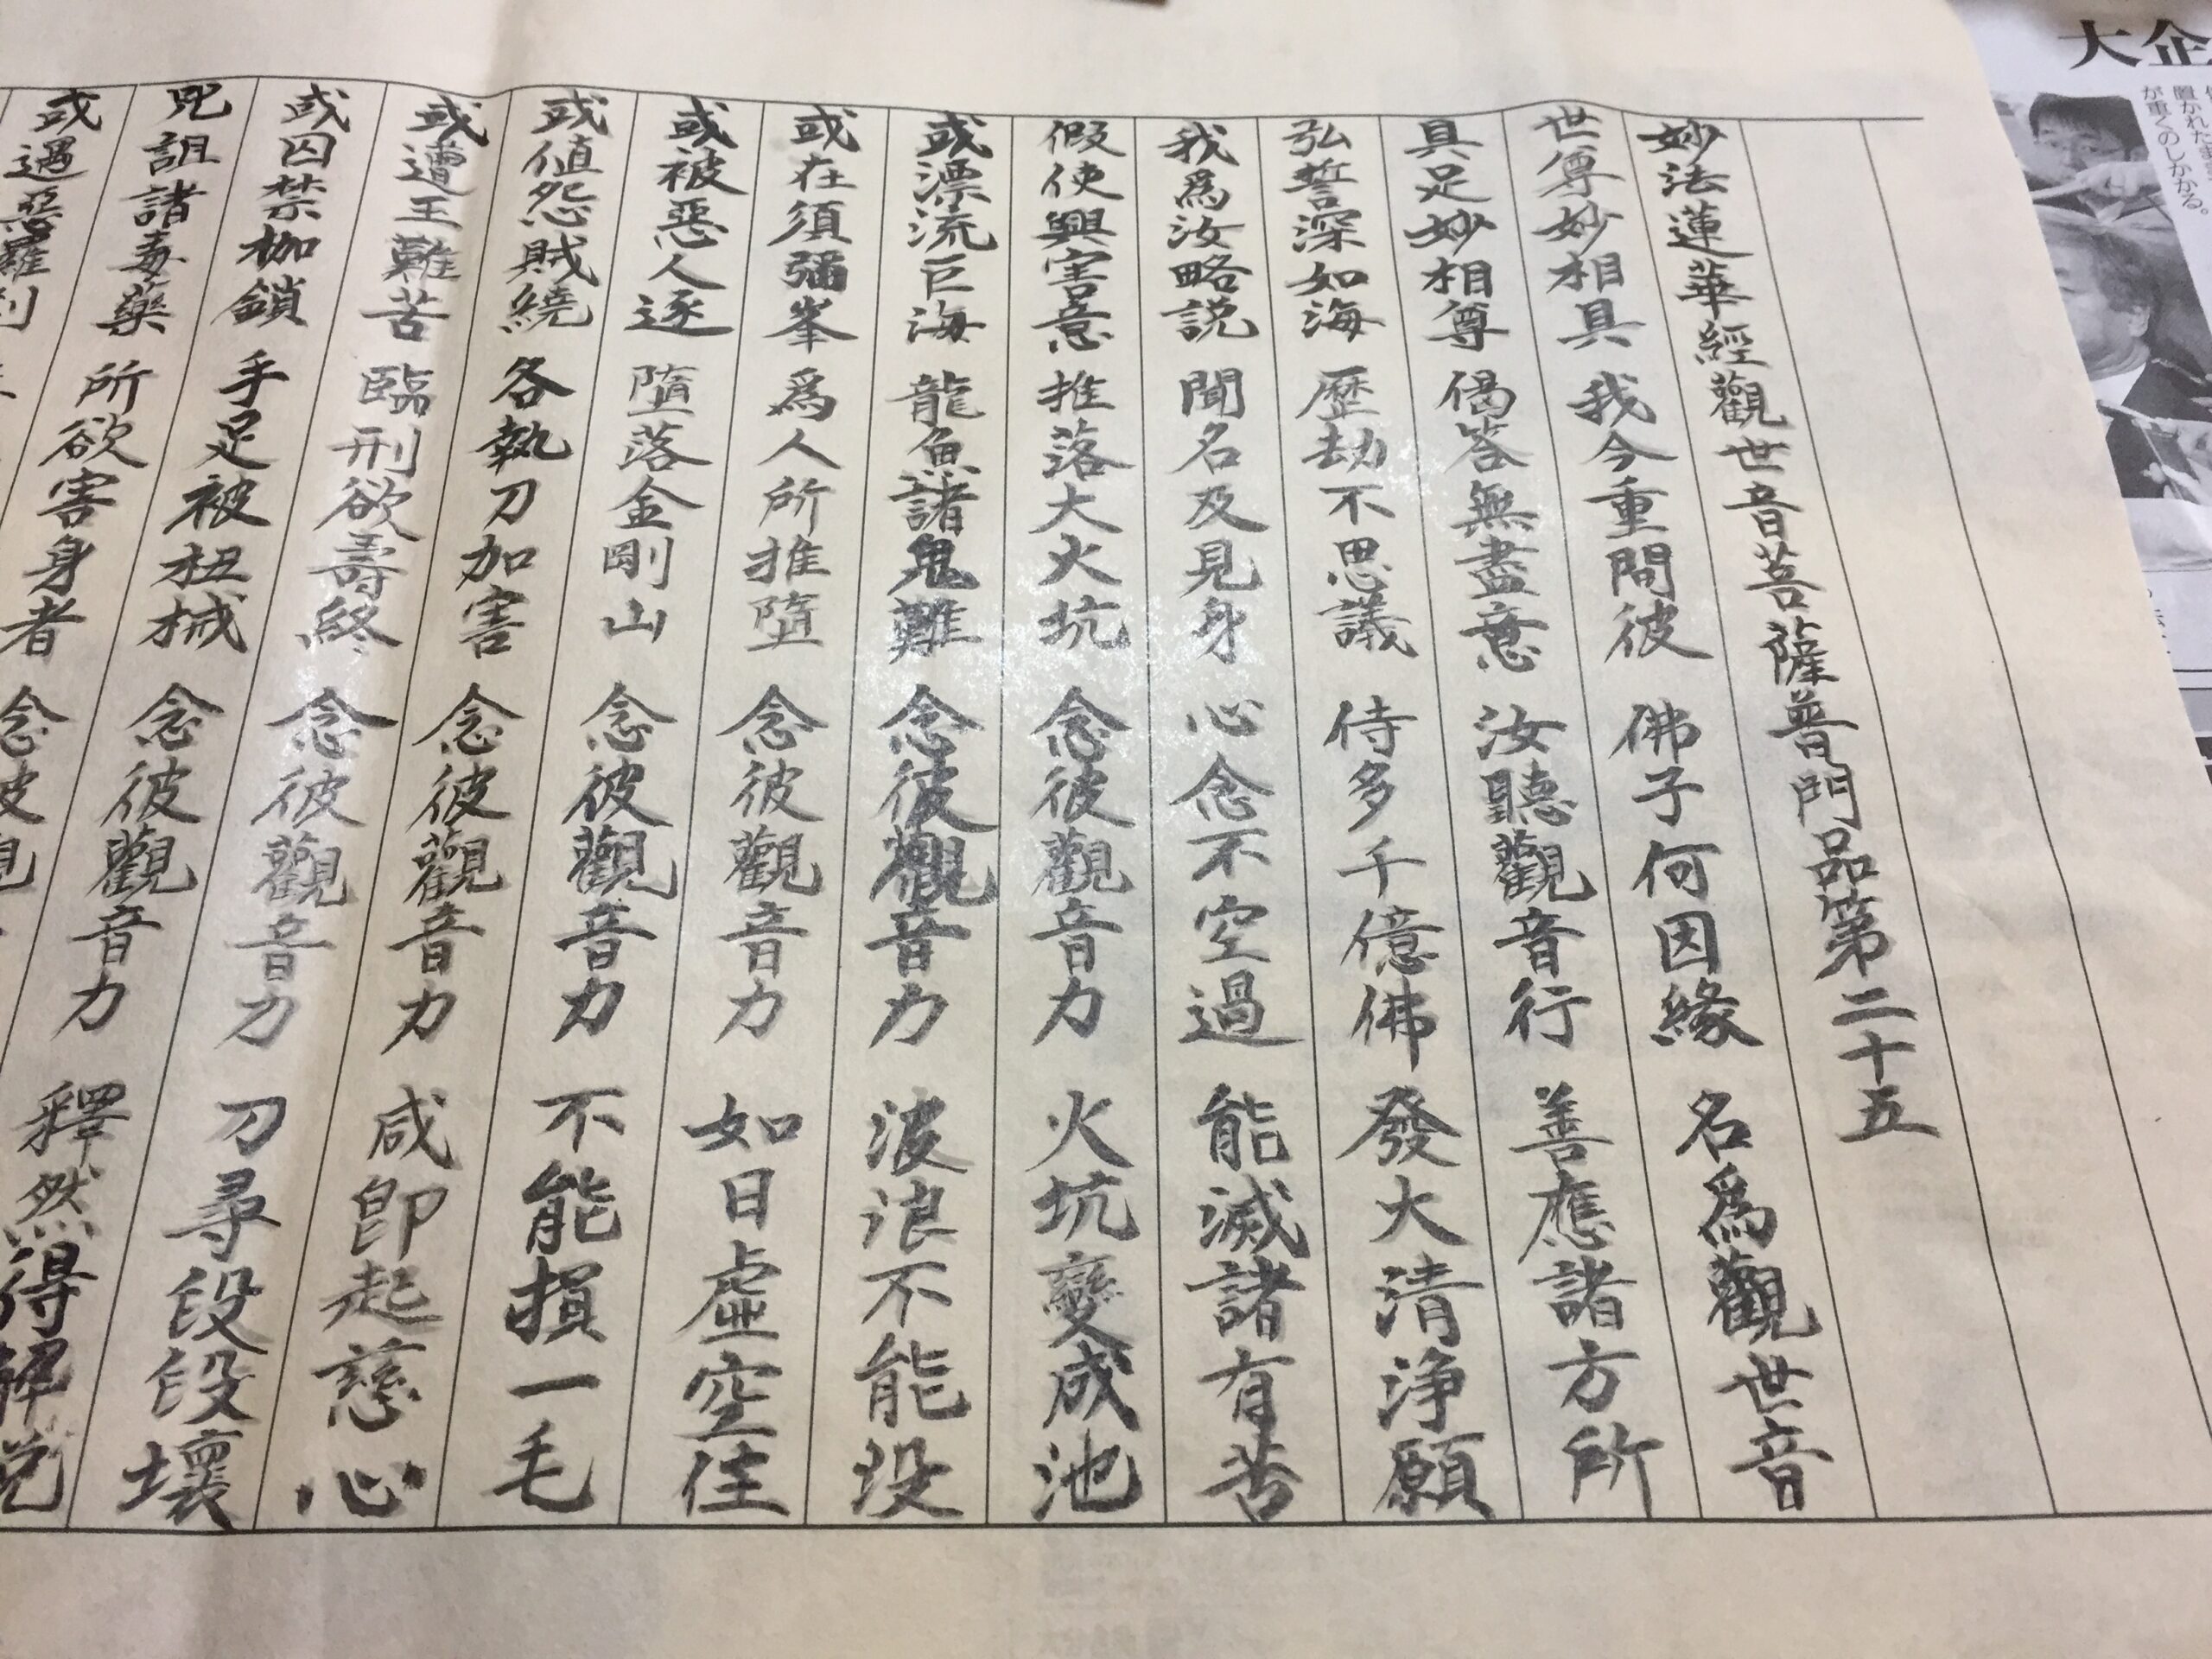 大企
置かれたまま
が重くのしかかる。
妙法蓮華經觀世音菩薩普門品第二十五
世尊妙相具 我今重問彼 佛子何因緣 名爲觀世音
具足妙相尊 偈答無盡意 汝聽觀音行 善應諸方所
弘誓深如海 歷劫不思議 侍多千億佛 發大清浄願
我爲汝略説 聞名及見身 心念不空過 能滅諸有苦
假使興害意 推落大火坑 念彼觀音力 火坑變成池
或漂流巨海 龍魚諸鬼難 念彼觀音力 波浪不能没
或在須彌峯 爲人所推墮 念彼觀音力 如日虚空住
或被惡人逐 墮落金剛山 念彼觀音力 不能損一毛
或値怨賊繞 各執刀加害 念彼觀音力 咸卽起慈心
或遭王難苦 臨刑欲壽終 念彼觀音力 刀尋段段壞
或囚禁枷鎖 手足被杻械 念彼觀音力 釋然得解脱
呪詛諸毒藥 所欲害身者 念彼觀
或遇惡羅刹